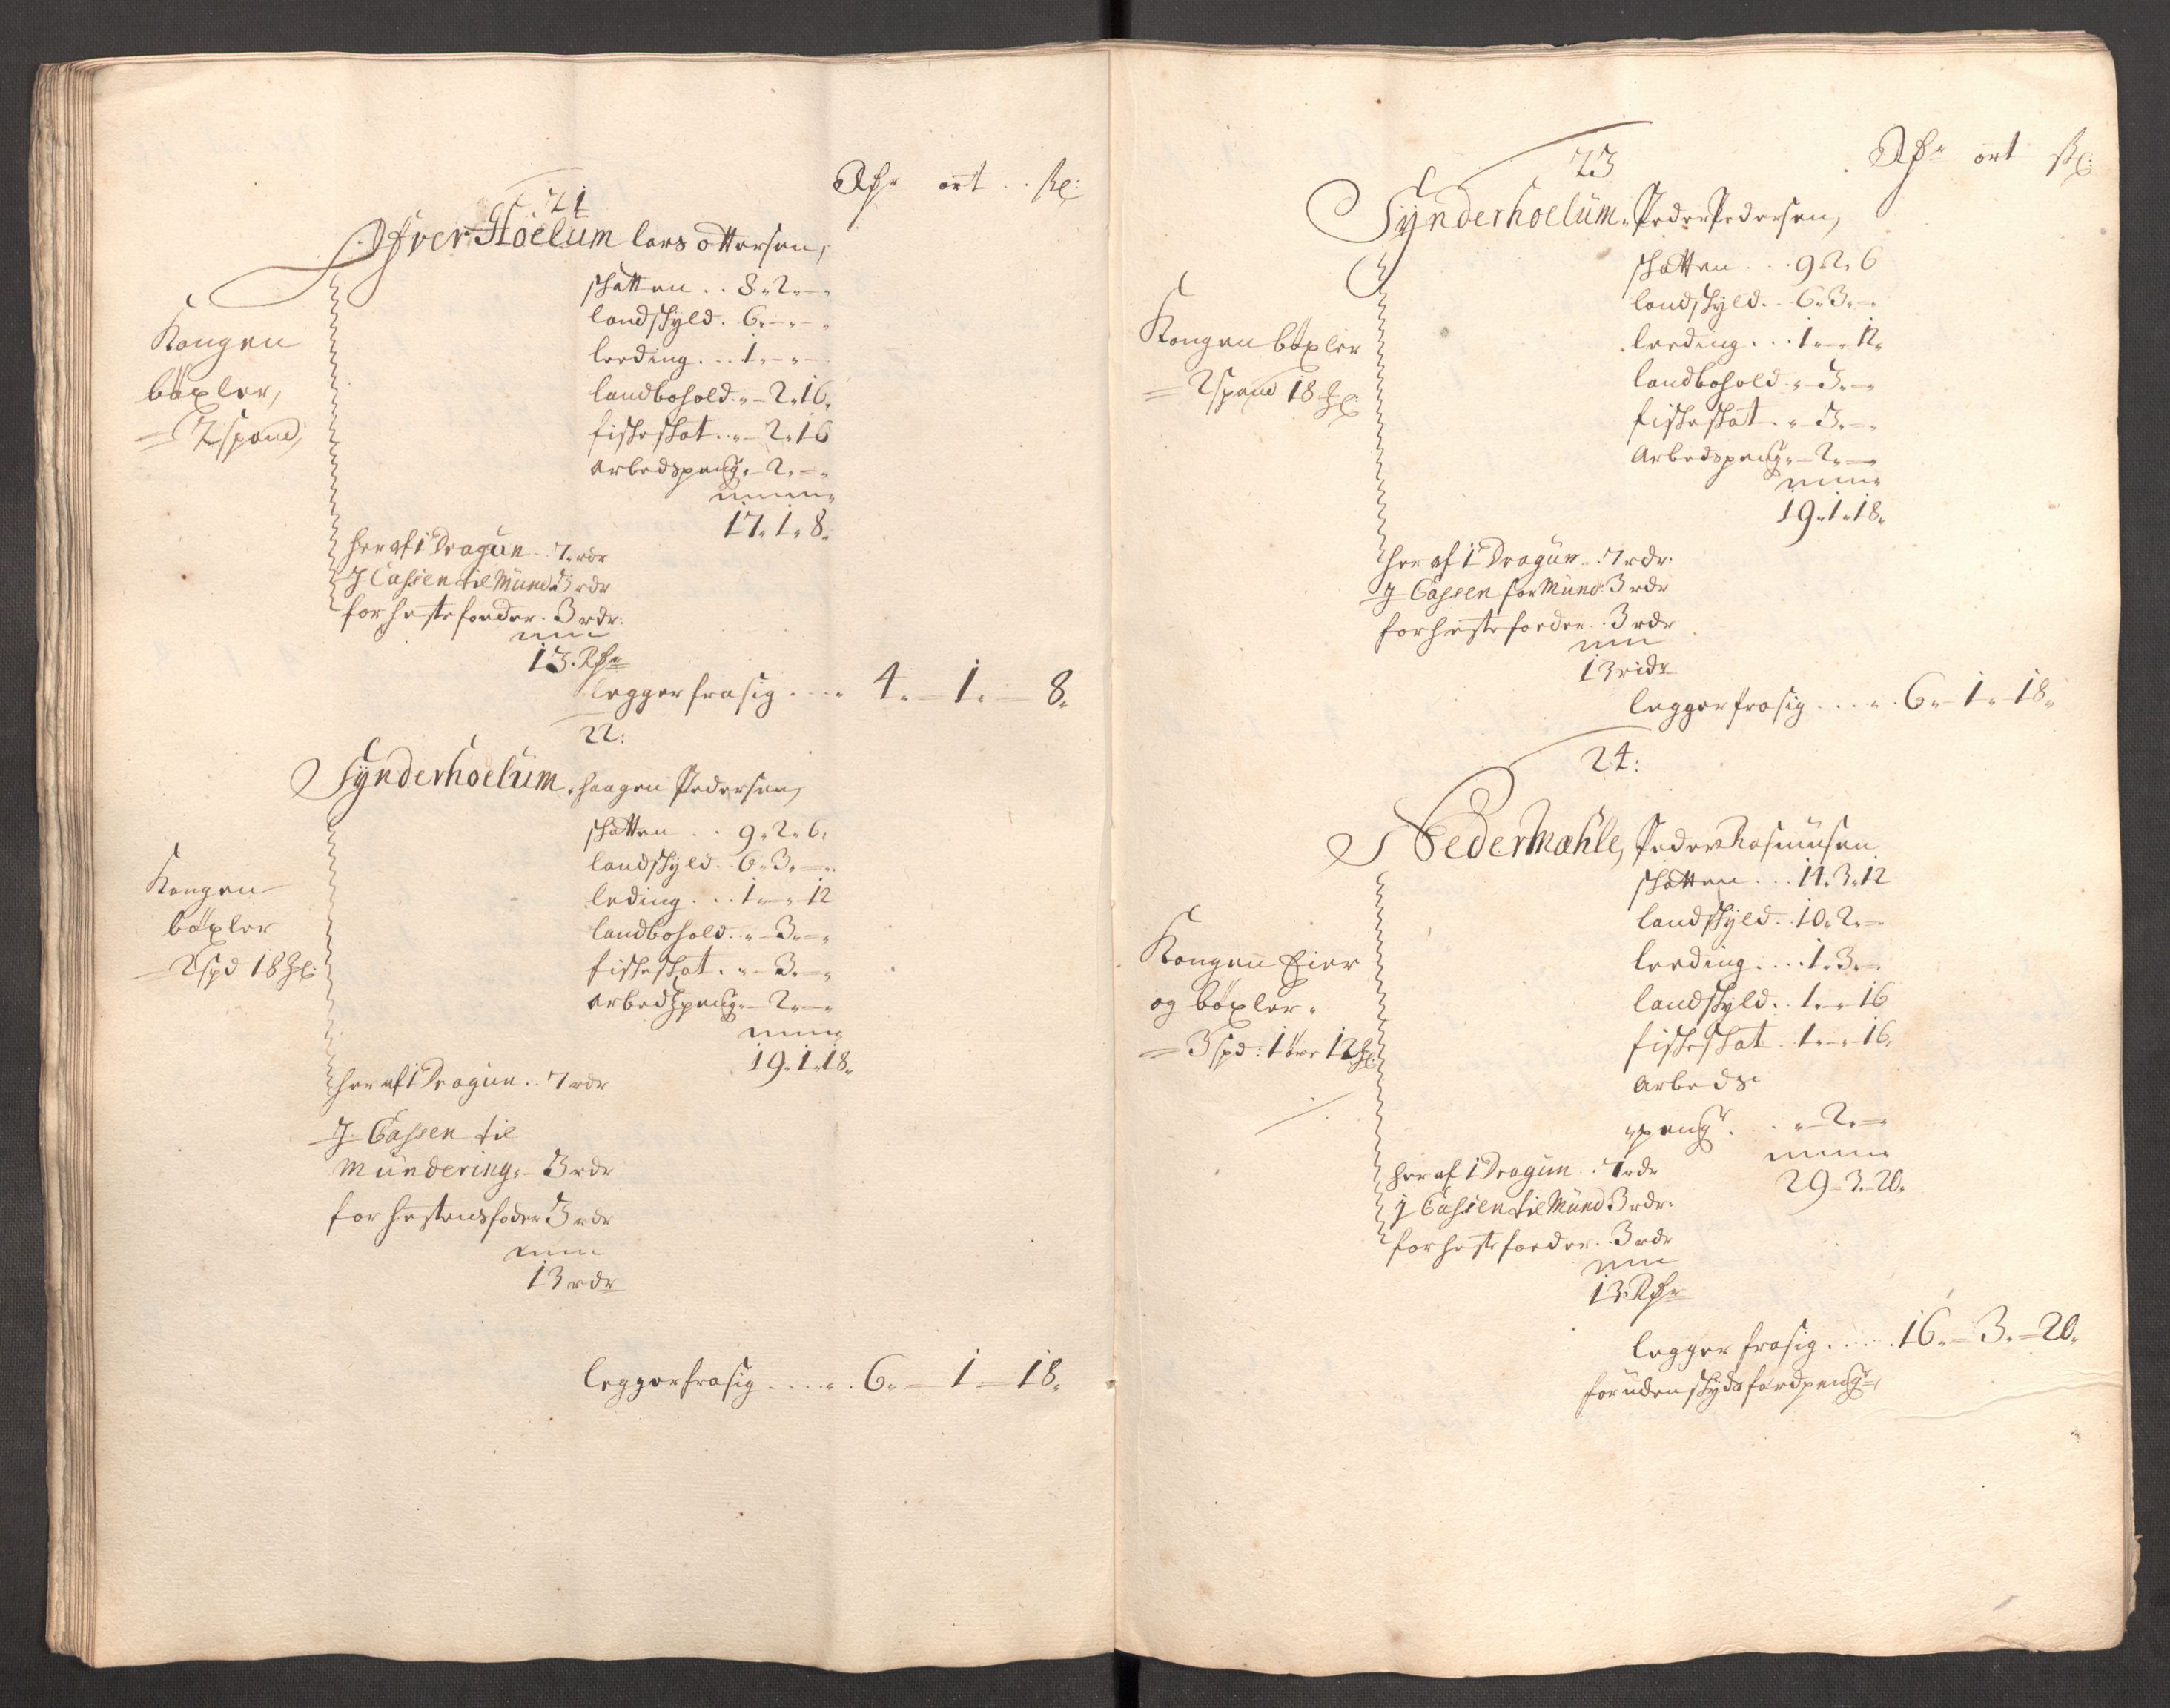 Rdr ort . . sk:
21
Øfver Hoelum lars ottersen,
Kongen
bøxler,
= 2 spand,
skatten . . 8. 2. –.
landskyld. 6. –. –.
leeding. . . 1. –. –
landbohold. „– 2. 16.
fiskeskat. . „– 2. 16
arbedspeng. – 2. –.
17. 1. 8.
her af 1 Dragun . . 7. rdr
J Cassen til Mund. 3 rdr
for hestefoeder . 3 rdr.
13. Rdr
legger fra sig . . . . 4. – 1. – 8.
22:
Synderhoelum, haagen Pedersen,
Kongen
bøxler
= 2 spd 18 mkl:
skatten . . 9. 2. 6.
landskyld. 6. 3. –.
leding. . . 1. –. 12
landbohold. „– 3. –.
fiskeskat . „– 3. –.
arbedspeng. – 2. –.
19. 1. 18.
her af 1 Dragun . . 7 rdr
J. Cassen til
Mundering. – 3 rdr
for hestensfoder 3 rdr
13 rdr
legger fra sig . . . . „. 6. – 1 – 18.
Rdr ort sk:
23
Synderhoelum. Peder Pedersen,
Kongen bøxler
= 2 spand 18 mkl:
skatten . . . 9. 2. 6
landskyld. . 6. 3. –.
leeding. . . 1. –. 12.
landbohold. „– 3. –.
fiskeskat . „– 3. –.
Arbedspeng. – 2. –.
19. 1. 18.
her af 1 Dragun . . 7 rdr.
J Cassen for Mund: 3 rdr
for hestefoeder . . 3 rdr
13 ridr
legger fra sig . . . . „. 6. – 1. – 18.
24:
Nedermæhle, Peder Rasmusen
Kongen Eier
og bøxler.
= 3 spd: 1 øre 12 mkl:
skatten . . . 14. 3. 12
landskyld. . 10. 2. –.
leeding. . . . 1. 3. –.
landskyld. . 1. –. 16
fiskeskat . 1. –. 16.
Arbeds-
peng. . . „– 2. –.
29 – 3. – 20.
her af 1 Dragun . . 7 rdr
J Cassen til Mund 3 rdr.
for hestefoeder . . 3 rdr
13. Rdr
legger fra sig . . . . 16. – 3. – 20.
foruden skydsfærdpeng.